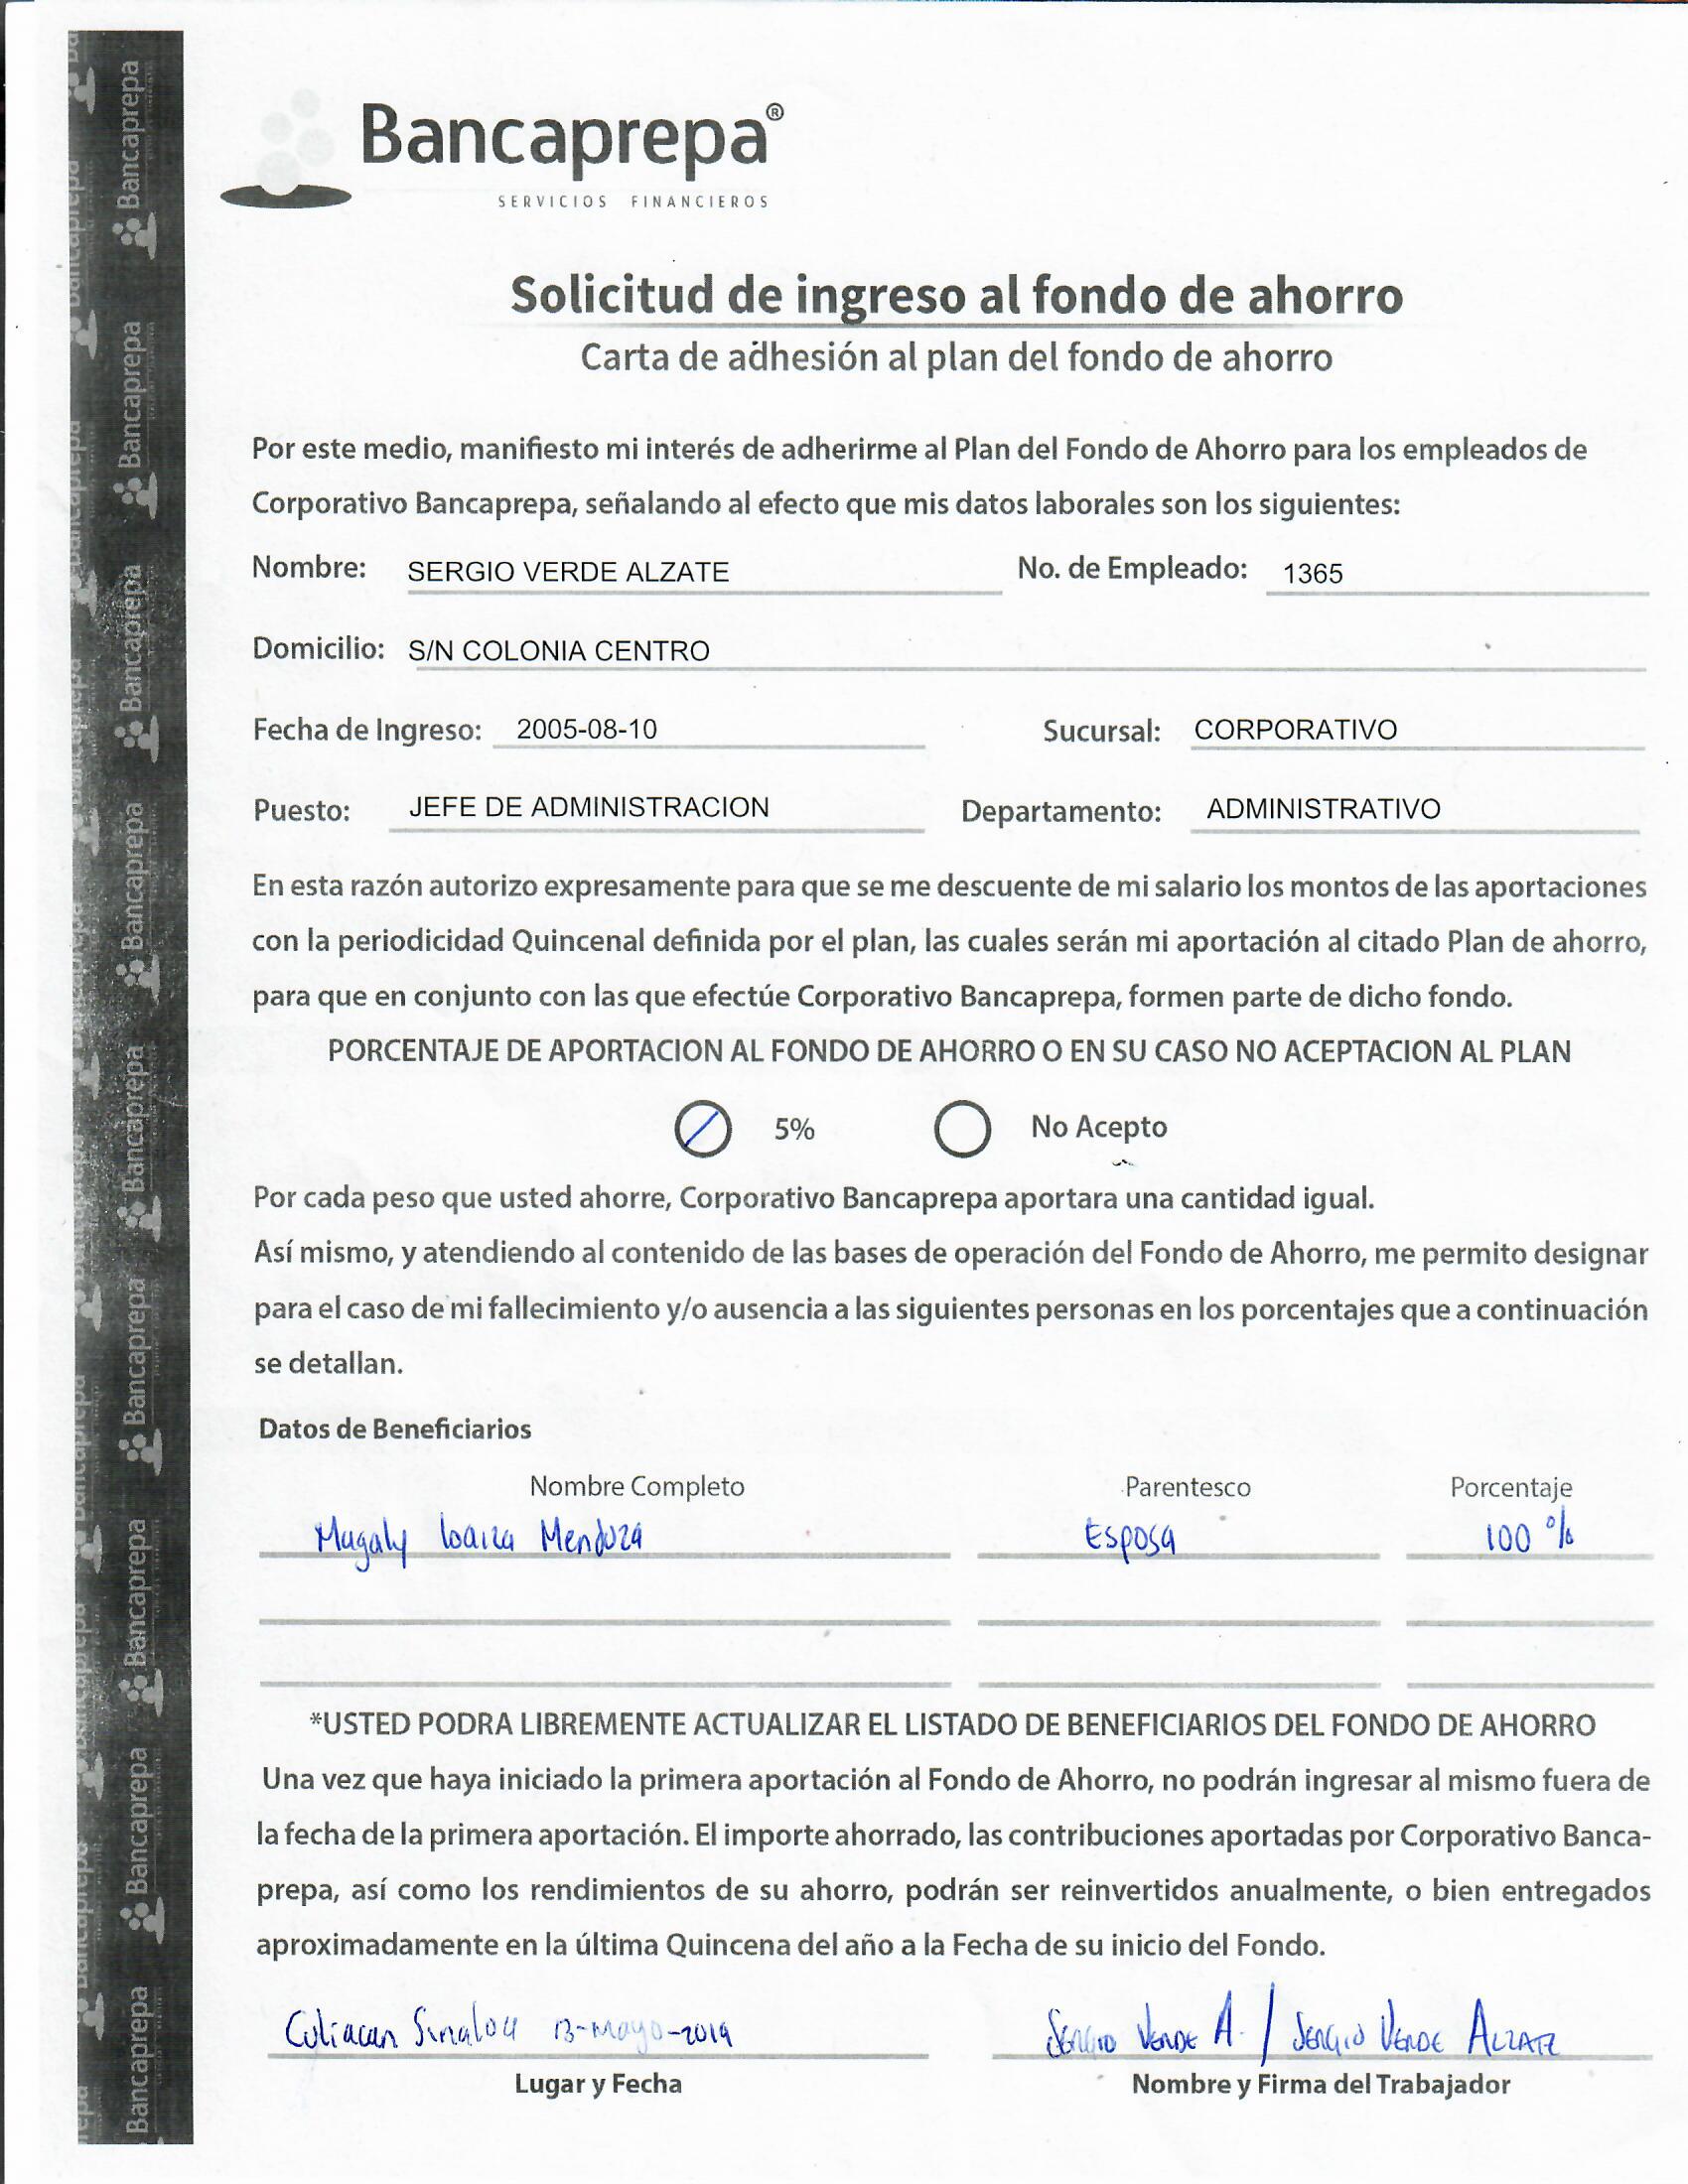 Bancaprepa®
SERVICIOS FINANCIEROS
Solicitud de ingreso al fondo de ahorro
Carta de adhesión al plan del fondo de ahorro
Por este medio, manifiesto mi interés de adherirme al Plan del Fondo de Ahorro para los empleados de
Corporativo Bancaprepa, señalando al efecto que mis datos laborales son los siguientes:
Nombre: SERGIO VERDE ALZATE No. de Empleado: 1365
Domicilio: S/N COLONIA CENTRO
Fecha de Ingreso: 2005-08-10 Sucursal: CORPORATIVO
Puesto: JEFE DE ADMINISTRACION Departamento: ADMINISTRATIVO
En esta razón autorizo expresamente para que se me descuente de mi salario los montos de las aportaciones
con la periodicidad Quincenal definida por el plan, las cuales serán mi aportación al citado Plan de ahorro,
para que en conjunto con las que efectúe Corporativo Bancaprepa, formen parte de dicho fondo.
PORCENTAJE DE APORTACION AL FONDO DE AHORRO O EN SU CASO NO ACEPTACION AL PLAN
5% No Acepto
Por cada peso que usted ahorre, Corporativo Bancaprepa aportara una cantidad igual.
Así mismo, y atendiendo al contenido de las bases de operación del Fondo de Ahorro, me permito designar
para el caso de mi fallecimiento y/o ausencia a las siguientes personas en los porcentajes que a continuación
se detallan.
Datos de Beneficiarios
Nombre Completo Parentesco Porcentaje
Magaly loaiza Mendoza Esposa 100 %
*USTED PODRA LIBREMENTE ACTUALIZAR EL LISTADO DE BENEFICIARIOS DEL FONDO DE AHORRO
Una vez que haya iniciado la primera aportación al Fondo de Ahorro, no podrán ingresar al mismo fuera de
la fecha de la primera aportación. El importe ahorrado, las contribuciones aportadas por Corporativo Banca-
prepa, así como los rendimientos de su ahorro, podrán ser reinvertidos anualmente, o bien entregados
aproximadamente en la última Quincena del año a la Fecha de su inicio del Fondo.
Culiacan Sinaloa 13-mayo-2019 SERGIO VERDE A. / SERGIO VERDE ALZATE
Lugar y Fecha Nombre y Firma del Trabajador